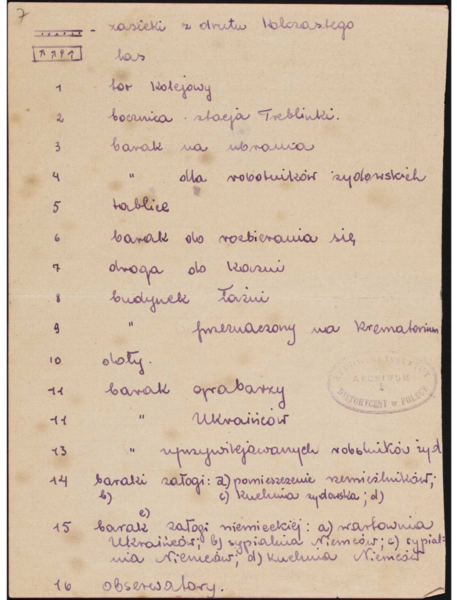 7
- zasieki z drutu kolczastego
las
1 tor kolejowy
2 bocznica - stacja Treblinki.
3 barak na ubrania
4 " dla robotników żydowskich
5 tablice
6 barak do rozbierania się
7 droga do kaźni
8 budynek łaźni
9 " przeznaczony na krematorium
10 doły.
11 barak grabarzy
11 " Ukraińców
13 " uprzywilejowanych robotników żyd
14 baraki załogi: a) pomieszczenie rzemieślników;
b) c) kuchnia żydowska; d)
e)
15 barak załogi niemieckiej: a) wartownia
Ukraińców; b) sypialnia Niemców; c) sypial-
nia Niemców, d) kuchnia Niemców
16 obserwatory.
ARCHIWUM
HISTORYCZNY w POLSCE